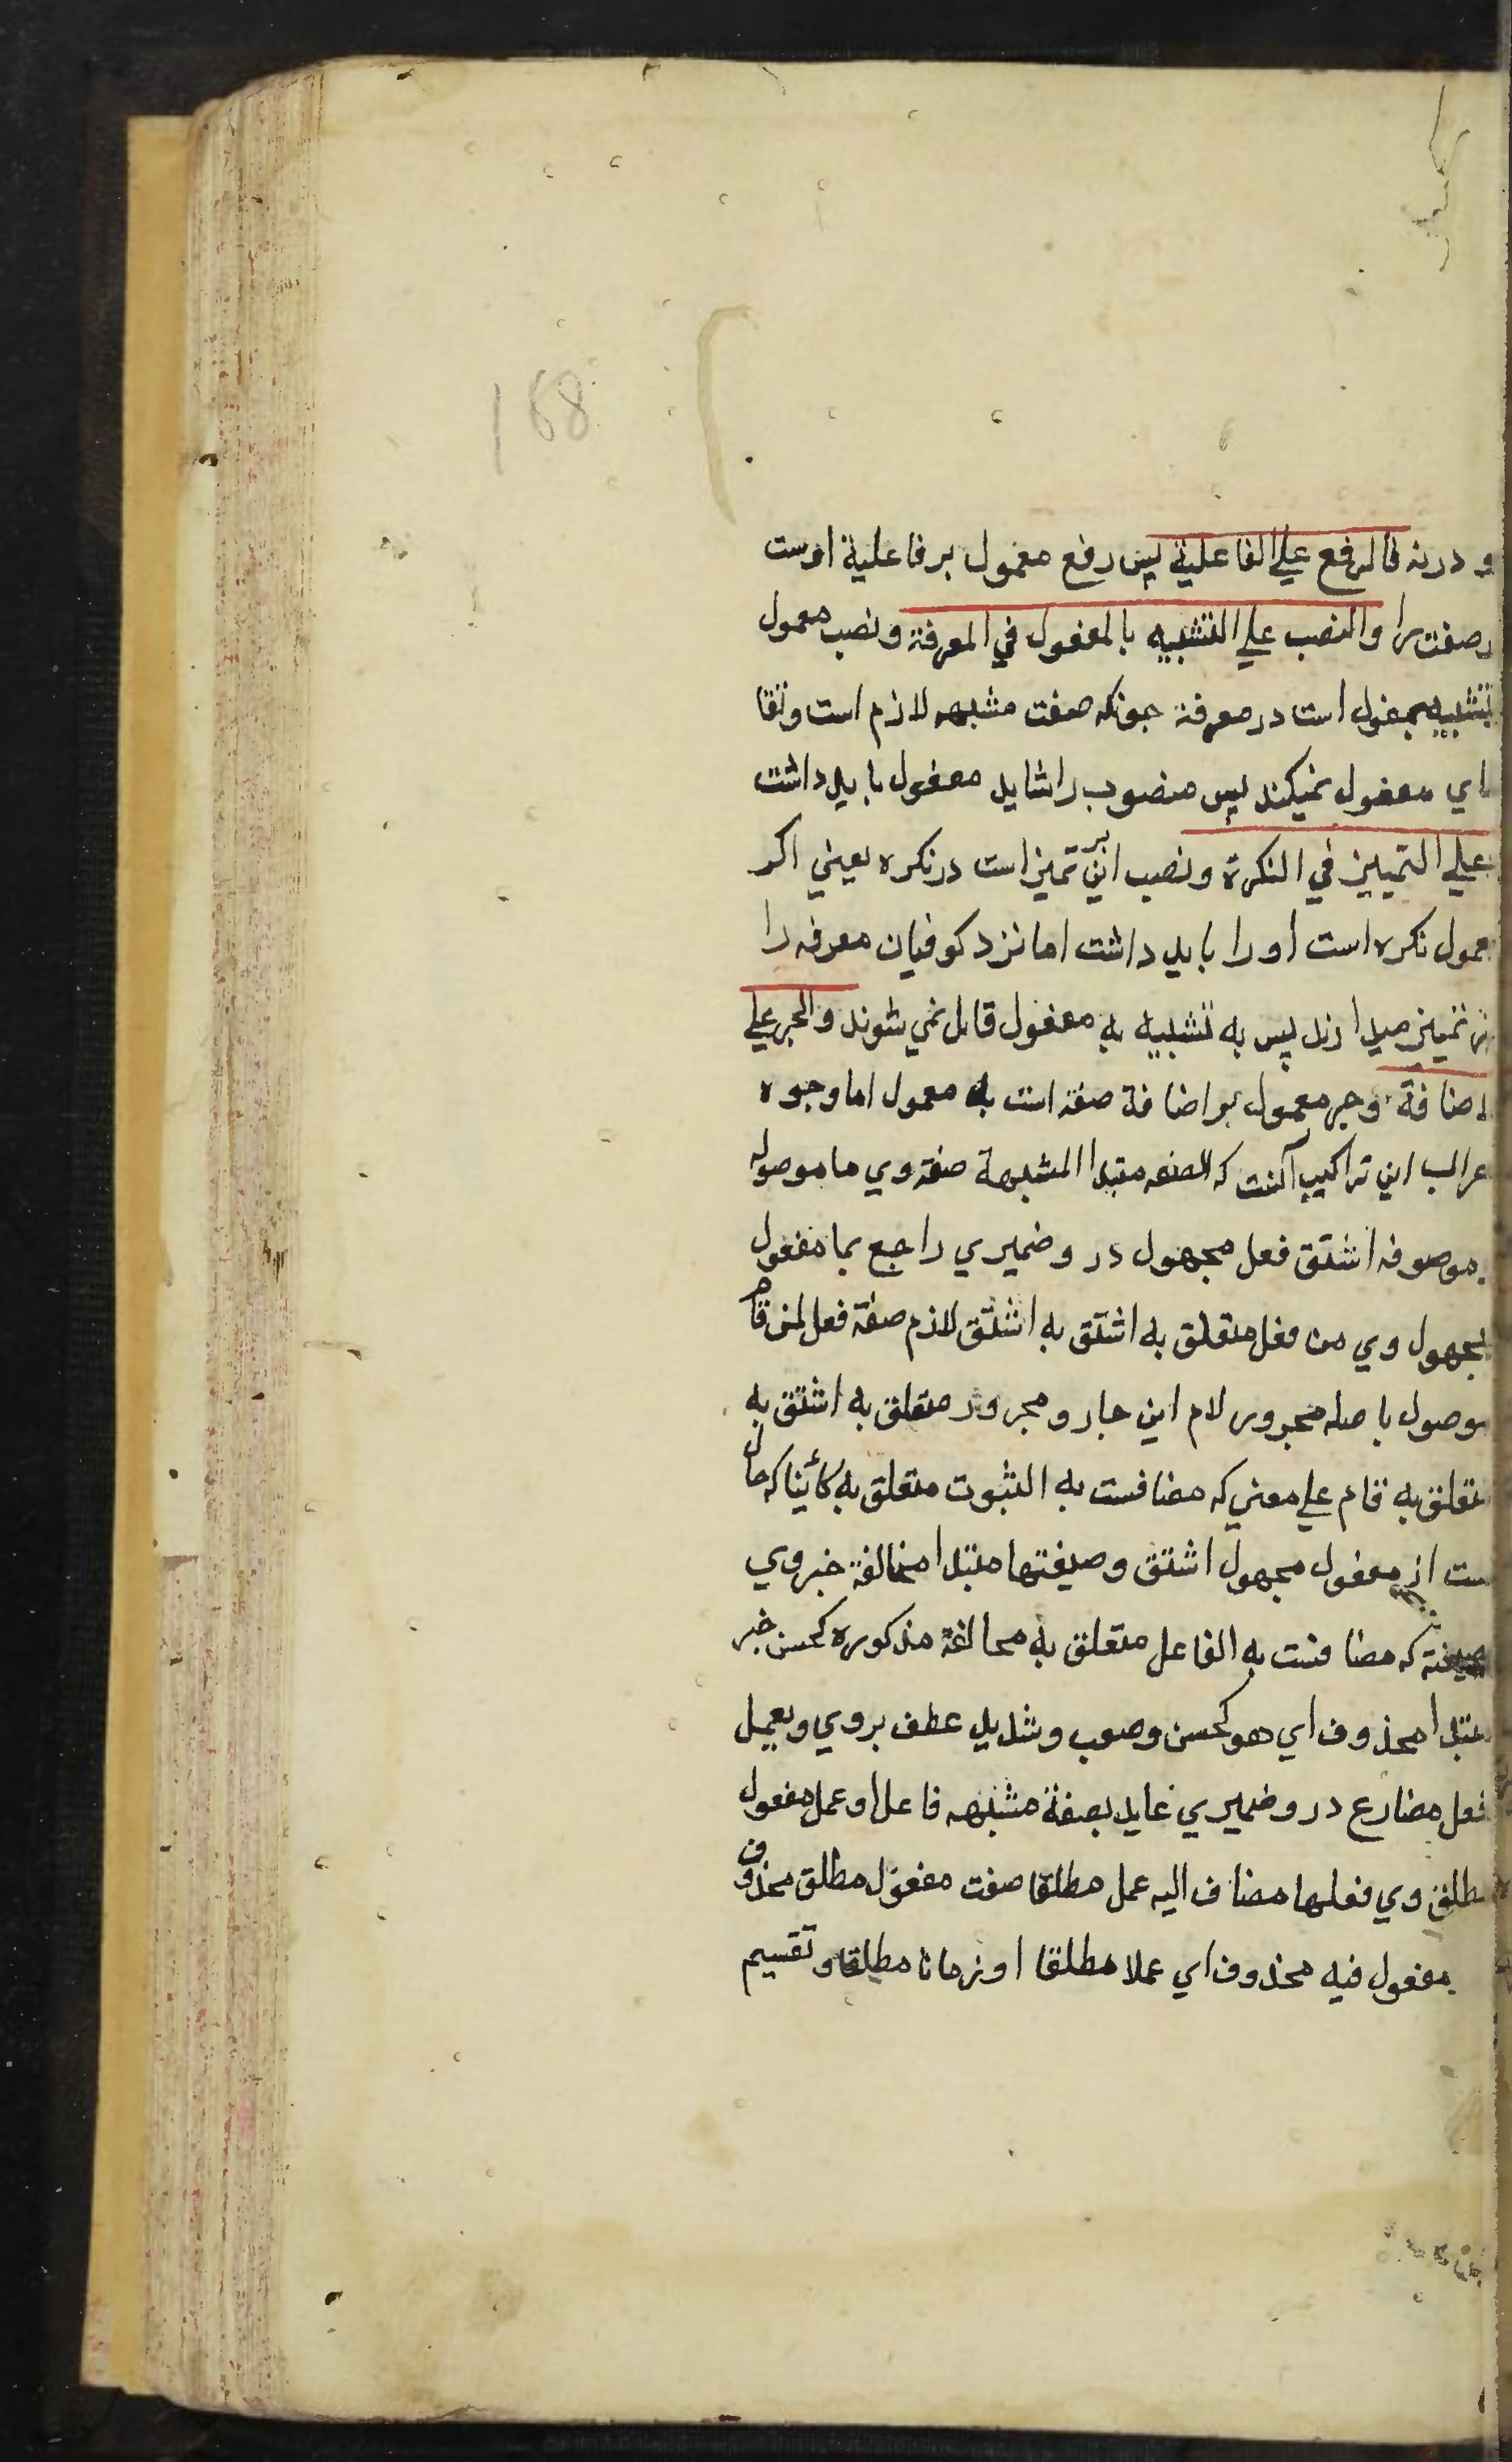 168
و درنه فالرفع علي الفاعلية پس رفع معمول بر فاعلية اوست
صفت را والنصب علي التشبيه بالمفعول في المعرفة و نصب معمول
بتشبيه بمفعول است در معرفة چونكه صفت مشبهه لازم است و تقا
ضاي مفعول نميكند پس منصوب را شايد مفعول بايد داشت
علي التمييز في النكرة و نصب اين بر تميز است در نكره يعيني اكر
معمول نكره است او را بايد داشت اما نزد كوفيان معرفه را
نيز تمييز ميدارند پس به تشبيه به مفعول قايل نمي شوند والجر علي
الاضافة و جر معمول بر اضافة صفة است به معمول اما وجوه
اعراب اين تراكيب آنست كه الصفه مبتدا المشبهة صفة وي ما موصوله
موصوفه اشتق فعل مجهول درو ضميري راجع بما مفعول
مجهول وي من فعل متعلق به اشتق به اشتق لازم صفة فعل لمن قام
موصول با صله مجرور لام اين جار و مجرور متعلق به اشتق به
متعلق به قام علي معني كه مضافست به الثبوت متعلق به كائنا كه حال
ست از مفعول مجهول اشتق و صيغتها مبتدا مخالفة خبر وي
صيغة كه مضافست به الفاعل متعلق به مخالفة مذكوره كحسن خبر
مبتدا محذوف اي هو كحسن و صعب و شديد عطف بر وي و يعمل
فعل مضارع درو ضميري عايد بصفة مشبهه فاعل او عمل مفعول
مطلق وي فعلها مضاف اليه عمل مطلقا صفت مفعول مطلق محذوف
مفعول فيه محذوف اي عملا مطلقا او زمانا مطلقا و تقسيم